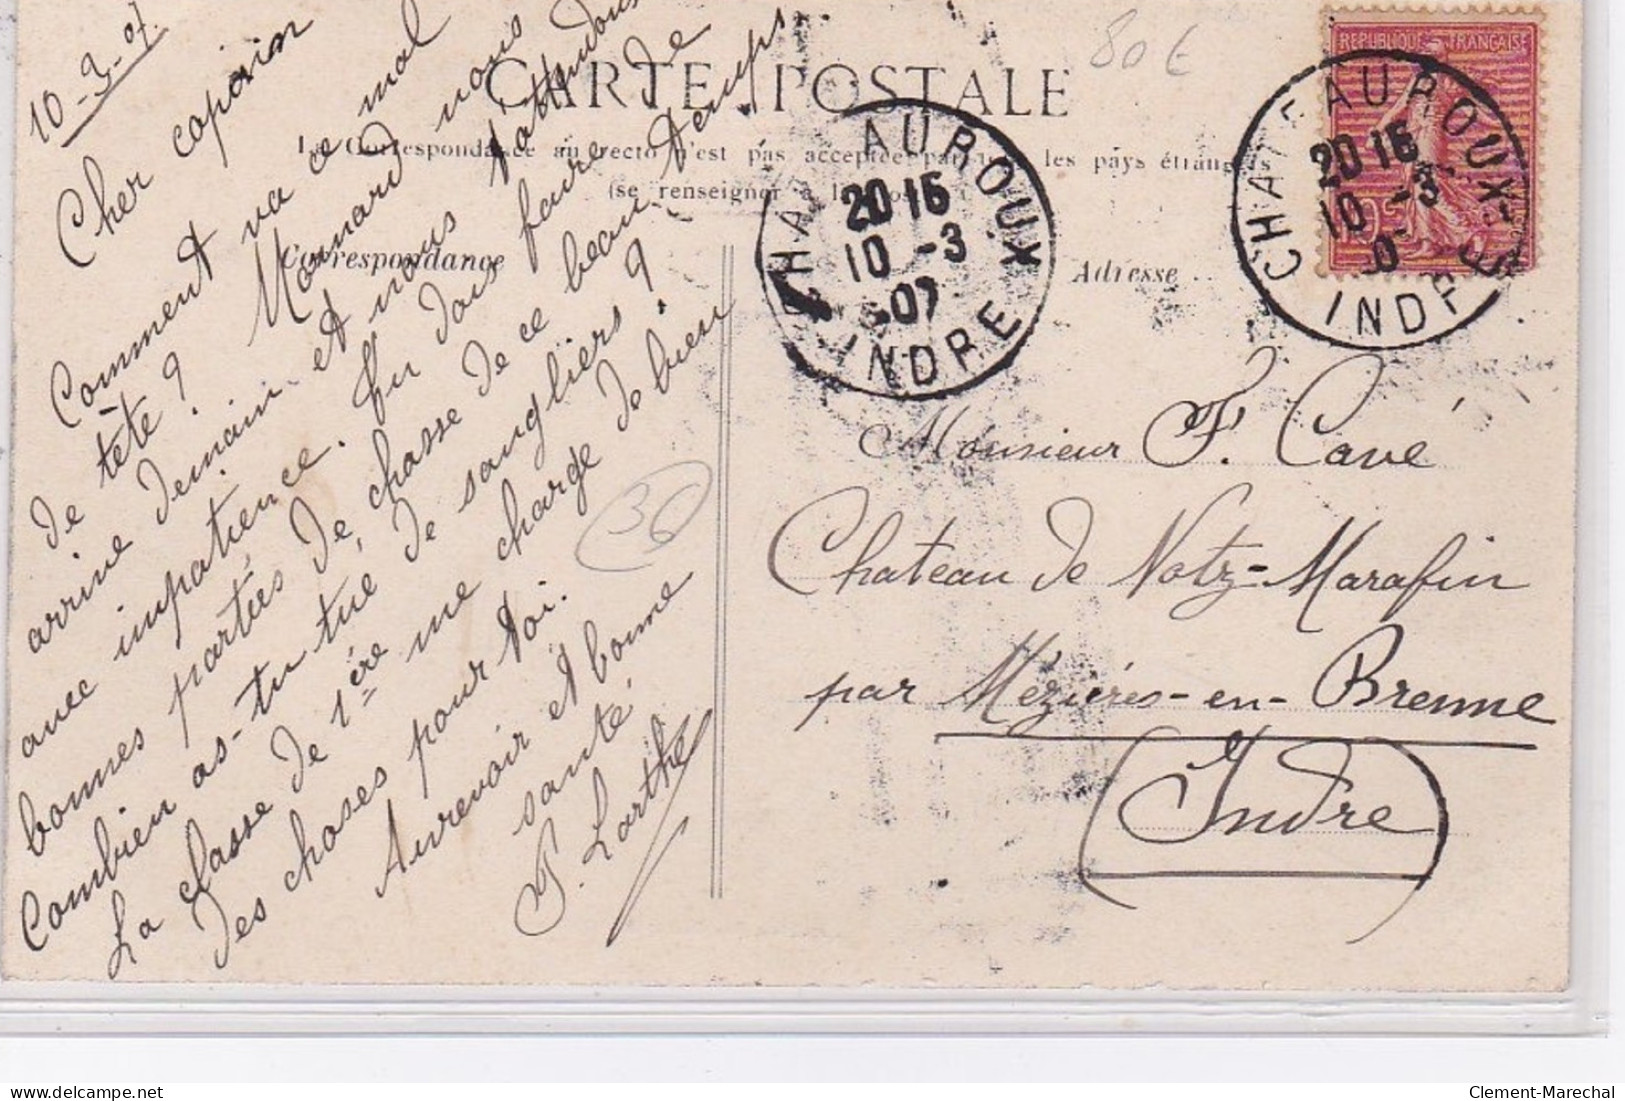 10-3-07
Cher copain
Comment va ce mal
de tête? Monnard nous
arrive demain et nous t'attendons
avec impatience. Tu dois faire de
bonnes parties de chasse de ce beau temps
Combien as-tu tué de sangliers?
La classe de 1ère me charge de bien
des choses pour toi.
Aurevoir et bonne
santé
P. Larthe
CARTE POSTALE
La Correspondance au recto n'est pas acceptée par tous les pays étrangers
(se renseigner à la
Correspondance
Adresse
80€
36
REPUBLIQUE FRANÇAISE
10c
CHATEAUROUX
20 15
10 -3
07
INDRE
CHATEAUROUX
20 15
10 -3
0
INDRE
Monsieur F. Cavé
Chateau de Notz-Marafin
par Mézières-en-Brenne
Indre
delcampe.net
Clement-Marechal